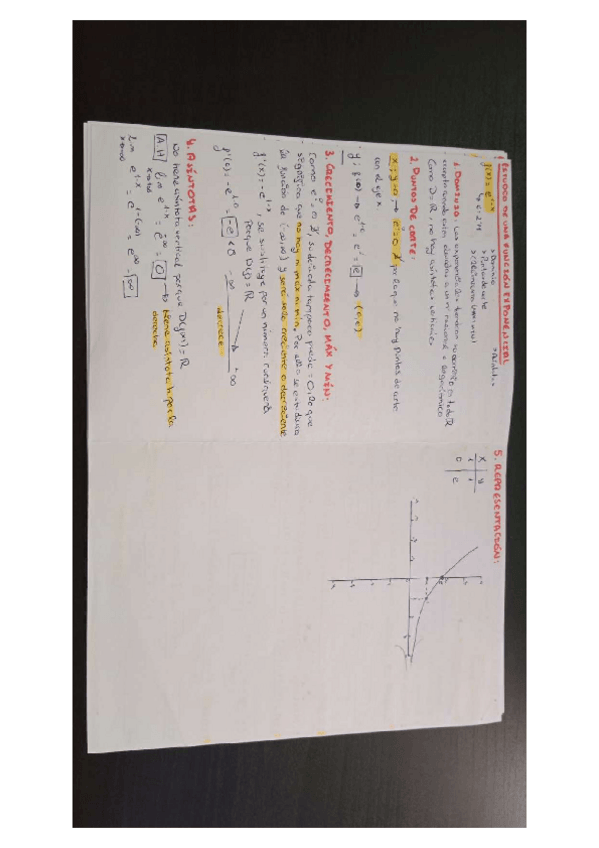 ESTUDIO DE UNA FUNCIÓN EXPONENCIAL
f(x) = e^1-x
e = 2'71
Dominio
Puntos de corte
1. DOMINIO: Las exponenciales tienen su dominio en todo R
excepto cuando estén elevadas a un nº racional o logarítmico
Como D = R, no hay asíntotas verticales
2. PUNTOS DE CORTE:
x; y=0 → por lo que no hay puntos de corte
con el eje x
y; f(0) → e^1-0 = e^1 = e → (0,e)
3. CRECIMIENTO, DECRECIMIENTO, MÁX Y MÍN:
Como e^x ≠ 0, su derivada tampoco puede = 0, lo que
significa que no hay ni máx ni min. Por ello se estudia
la función de (-∞,∞) y será solo creciente o decreciente
f'(x) = -e^1-x, se sustituye por un número cualquiera
porque D(f) = R
f'(0) = -e^1-0 = -e < 0
-∞ +∞
decrece
4. ASÍNTOTAS:
No tiene asíntota vertical porque D(f(x)) = R
A.H lim e^1-x = e^-∞ = 0 → tiene asíntota h por la
x→+∞
derecha
lim e^1-x = e^1-(-∞) = e^∞ = +∞
x→-∞
5. REPRESENTACIÓN:
x y
1 1
0 e